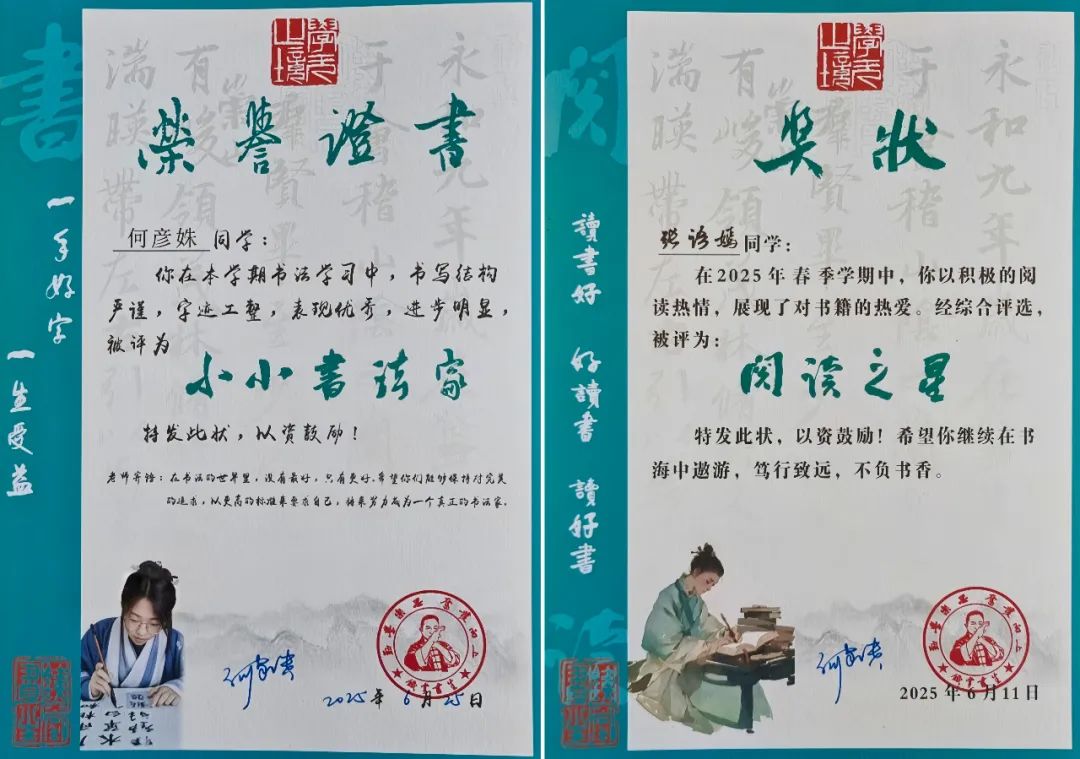 書
一手好字
一生受益
榮譽證書
何彦姝 同学：
你在本学期书法学习中，书写结构
严谨，字迹工整，表现优秀，进步明显，
被评为
小小書法家
特发此状，以资鼓励！
老师寄语：在书法的世界里，没有最好，只有更好。希望你们能够保持对完美
的追求，以更高的标准来要求自己，将来努力成为一个真正的书法家。
2025年 6月25日
阅
讀書好
好讀書
讀好書
奖狀
张语嫣同学：
在2025年春季学期中，你以积极的阅
读热情，展现了对书籍的热爱。经综合评选，
被评为：
阅读之星
特发此状，以资鼓励！希望你继续在书
海中遨游，笃行致远，不负书香。
2025年6月11日
永和九年
有峻領
湍暎帶左